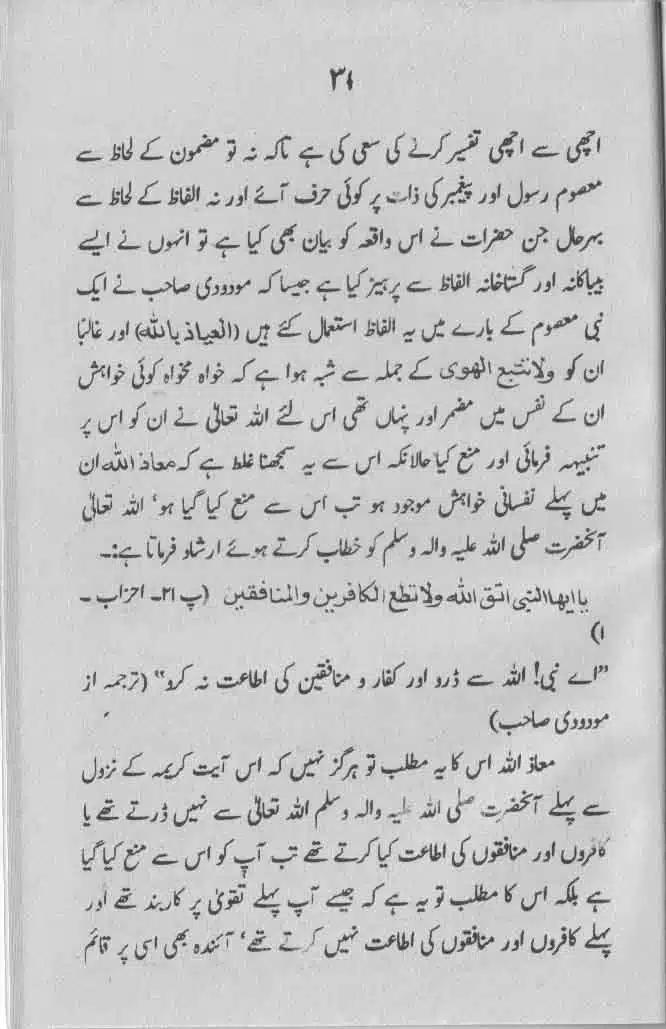 ۳۱
اچھی سے اچھی تفسیر کرنے کی سعی کی ہے تاکہ نہ تو مضمون کے لحاظ سے
معصوم رسول اور پیغمبر کی ذات پر کوئی حرف آئے اور نہ الفاظ کے لحاظ سے
بہرحال جن حضرات نے اس واقعہ کو بیان بھی کیا ہے تو انہوں نے ایسے
بیباکانہ اور گستاخانہ الفاظ سے پرہیز کیا ہے جیسا کہ مودودی صاحب نے ایک
نبی معصوم کے بارے میں یہ الفاظ استعمال کئے ہیں (العیاذ باللہ) اور غالبًا
ان کو ولاتتبع الھوی کے جملہ سے شبہ ہوا ہے کہ خواہ مخواہ کوئی خواہش
ان کے نفس میں مضمر اور پنہاں تھی اس لئے اللہ تعالیٰ نے ان کو اس پر
تنبیہہ فرمائی اور منع کیا حالانکہ اس سے یہ سمجھنا غلط ہے کہ معاذ اللہ ان
میں پہلے نفسانی خواہش موجود ہو تب اس سے منع کیا گیا ہو‘ اللہ تعالیٰ
آنحضرت صلی اللہ علیہ والہ وسلم کو خطاب کرتے ہوئے ارشاد فرماتا ہے:۔
یاایھاالنبی اتق اللہ ولاتطع الکافرین والمنافقین (پ ۲۱۔ احزاب ۔
۱)
”اے نبی! اللہ سے ڈرو اور کفار و منافقین کی اطاعت نہ کرو“ (ترجمہ از
مودودی صاحب)
معاذ اللہ اس کا یہ مطلب تو ہرگز نہیں کہ اس آیت کریمہ کے نزول
سے پہلے آنحضرت صلی اللہ علیہ والہ وسلم اللہ تعالیٰ سے نہیں ڈرتے تھے یا
کافروں اور منافقوں کی اطاعت کیا کرتے تھے تب آپ کو اس سے منع کیا گیا
ہے بلکہ اس کا مطلب تو یہ ہے کہ جیسے آپ پہلے تقویٰ پر کاربند تھے اور
پہلے کافروں اور منافقوں کی اطاعت نہیں کرتے تھے‘ آئندہ بھی اسی پر قائم